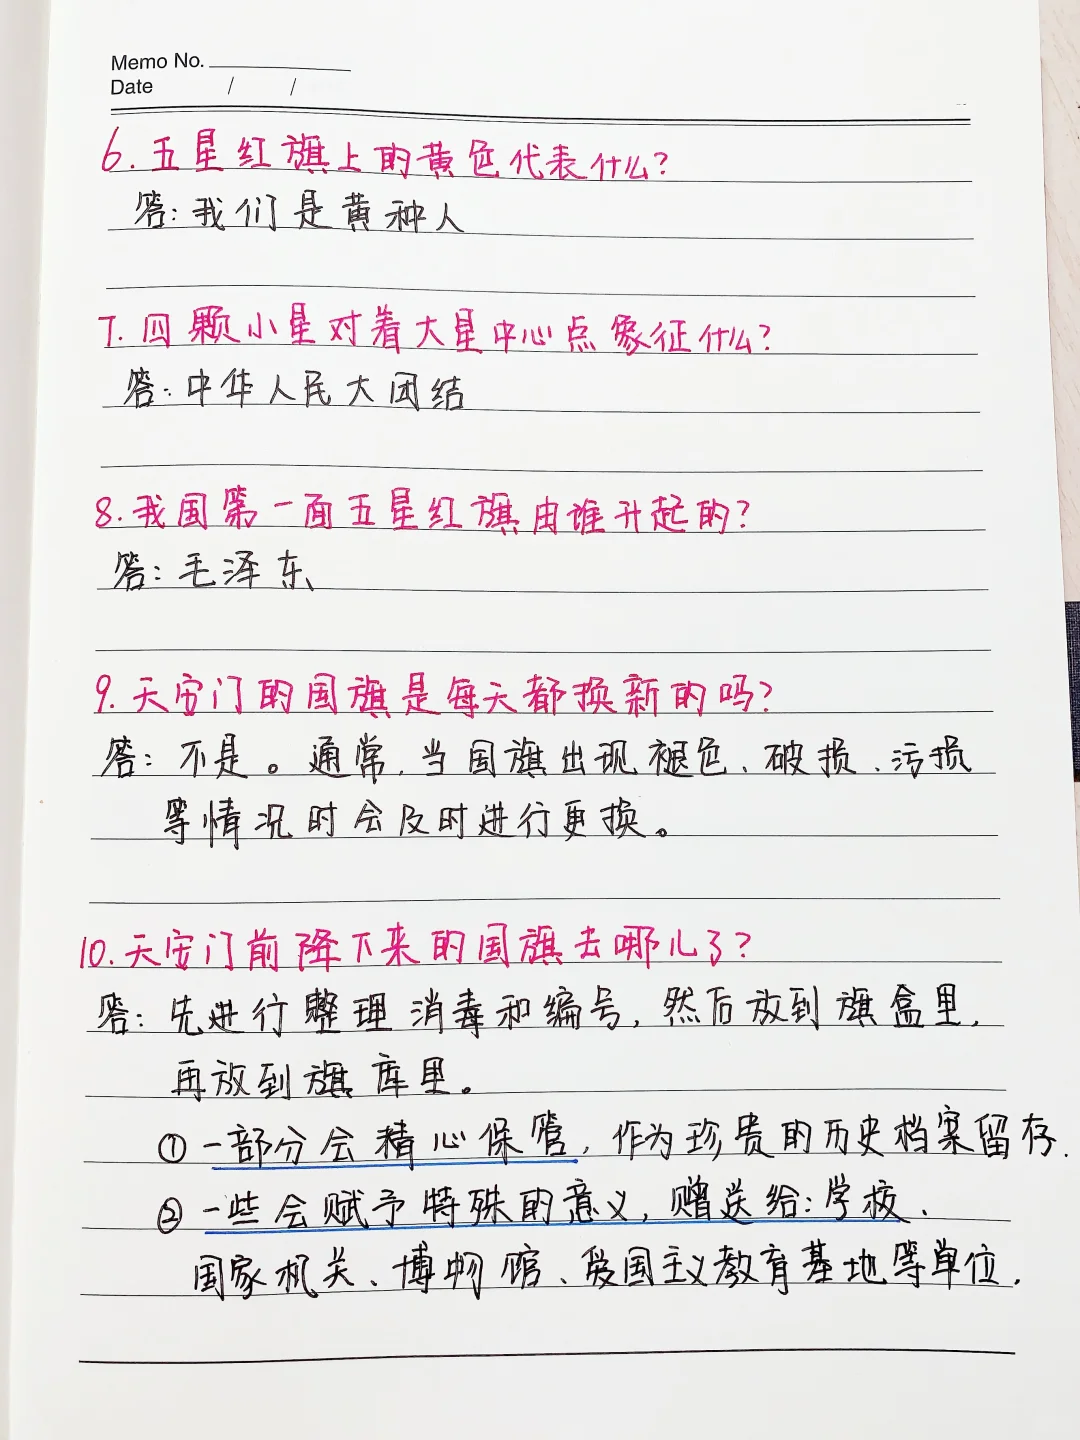 Memo No.
Date / /
6.五星红旗上的黄色代表什么?
答:我们是黄种人
7.四颗小星对着大星中心点象征什么?
答:中华人民大团结
8.我国第一面五星红旗由谁升起的?
答:毛泽东
9.天安门的国旗是每天都换新的吗?
答:不是。通常,当国旗出现褪色、破损、污损
等情况时会及时进行更换。
10.天安门前降下来的国旗去哪儿了?
答:先进行整理消毒和编号,然后放到旗盒里,
再放到旗库里。
①一部分会精心保管,作为珍贵的历史档案留存.
②一些会赋予特殊的意义,赠送给:学校、
国家机关、博物馆、爱国主义教育基地等单位.